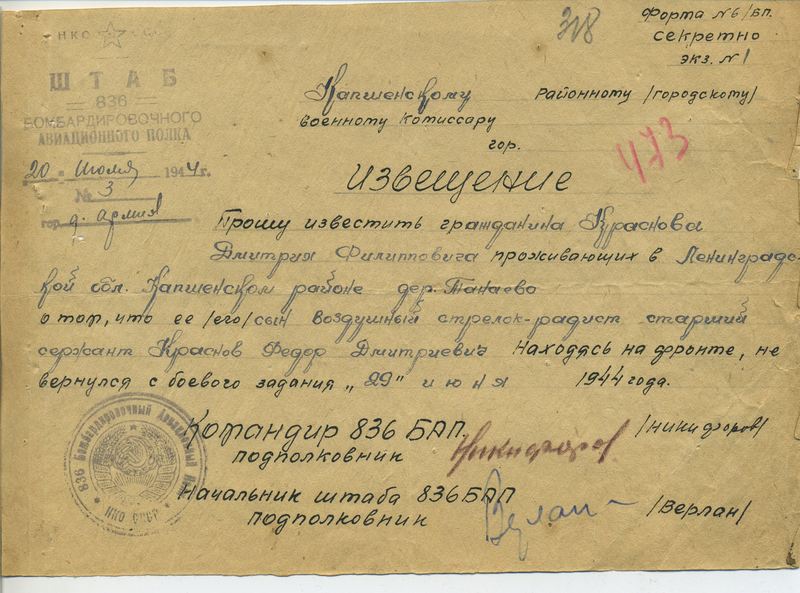 НКО СССР
ШТАБ
836
БОМБАРДИРОВОЧНОГО
АВИАЦИОННОГО ПОЛКА
20 " Июля 1944 г.
№ 3
гор. д. армия
318
Форма №6/БП.
секретно
экз. №1
Капшенскому районному /городскому/
военному комиссару
гор.
473
Извещение
Прошу известить гражданина Краснова
Дмитрия Филипповича проживающих в Ленинградс-
кой обл. Капшенском районе дер. Танаево
о том, что ее /его/ сын воздушный стрелок-радист старший
сержант Краснов Федор Дмитриевич находясь на фронте, не
вернулся с боевого задания „29" июня 1944 года.
Командир 836 БАП.
подполковник Никифоров /Никифоров/
Начальник штаба 836 БАП
подполковник Верлан /Верлан/
836 Бомбардировочный Авиационный Полк
НКО СССР